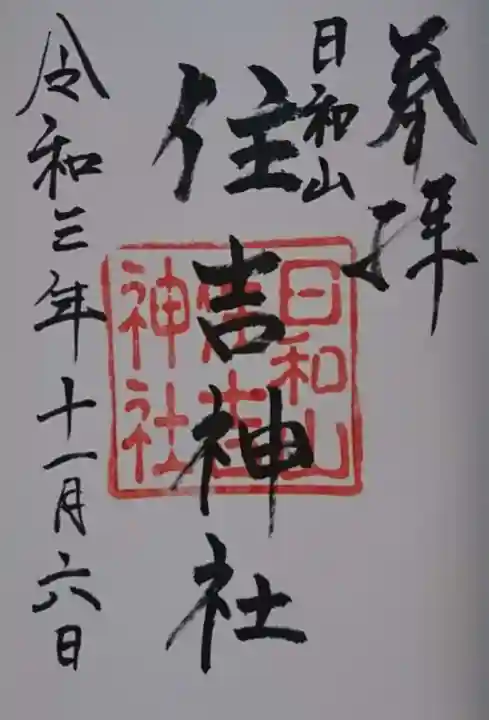 奉拝
日和山
住吉神社
日和山
住吉
神社
令和三年十一月六日